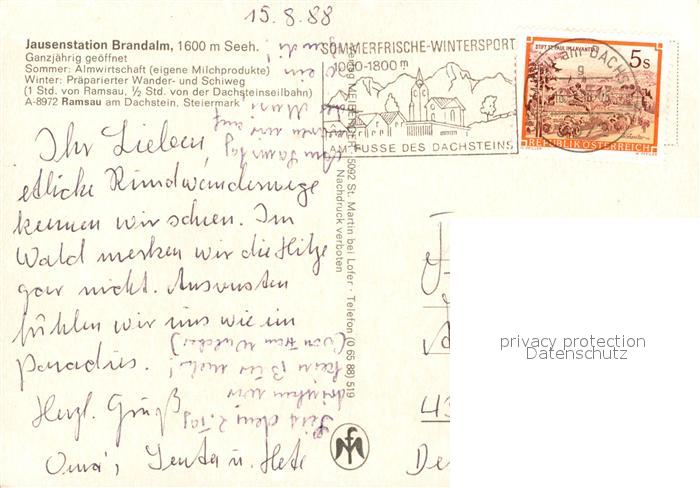 15.8.88
Jausenstation Brandalm, 1600 m Seeh.
Ganzjährig geöffnet
Sommer: Almwirtschaft (eigene Milchprodukte)
Winter: Präparierter Wander- und Schiweg
(1 Std. von Ramsau, ½ Std. von der Dachsteinseilbahn)
A-8972 Ramsau am Dachstein, Steiermark
SOMMERFRISCHE-WINTERSPORT
1000-1800 m
AM FUSSE DES DACHSTEINS
am DACHS
STIFT ST. PAUL IM LAVANTTAL
5s
REPUBLIK ÖSTERREICH
Ihr Lieben,
etliche Rundwanderwege
kennen wir schon. Im
Wald merken wir die Hitze
gar nicht. Ansonsten
fühlen wir uns wie im
Paradies.
Herzl. Grüße
Oma,
Seit dem 2. Tag
trinken wir
kein Bier mehr!
(von Frau
Am Samstag
5092 St. Martin bei Lofer · Telefon (0 65 88) 519
Nachdruck verboten
privacy protection
Datenschutz